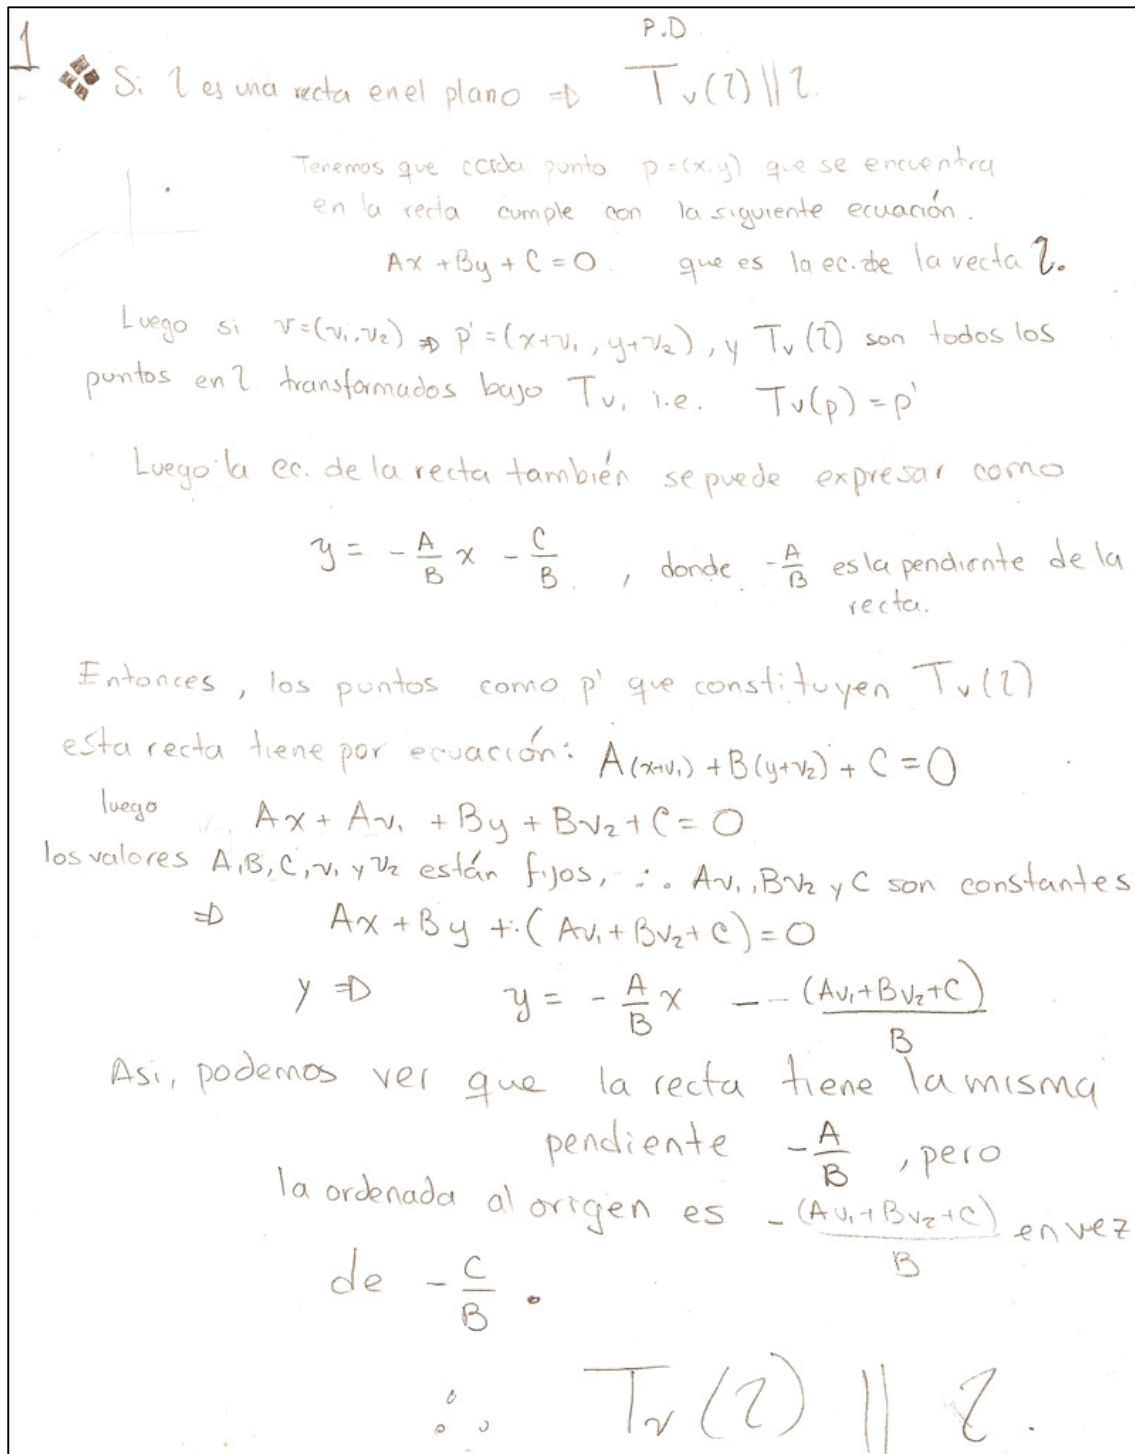 1
P.D
❖ Si l es una recta en el plano ⇒ Tv(l) || l.
Tenemos que cada punto p=(x,y) que se encuentra
en la recta cumple con la siguiente ecuación.
Ax + By + C = 0. que es la ec. de la recta l.
Luego si v=(v₁,v₂) ⇒ p'=(x+v₁, y+v₂), y Tv(l) son todos los
puntos en l transformados bajo Tv, i.e. Tv(p) = p'
Luego la ec. de la recta también se puede expresar como
y = -A/B x - C/B, donde -A/B es la pendiente de la
recta.
Entonces, los puntos como p' que constituyen Tv(l)
esta recta tiene por ecuación: A(x+v₁) + B(y+v₂) + C = 0
luego Ax + Av₁ + By + Bv₂ + C = 0
los valores A, B, C, v₁ y v₂ están fijos, ∴ Av₁, Bv₂ y C son constantes
⇒ Ax + By + (Av₁ + Bv₂ + C) = 0
y ⇒ y = -A/B x - -(Av₁+Bv₂+C)/B
Asi, podemos ver que la recta tiene la misma
pendiente -A/B, pero
la ordenada al origen es -(Av₁+Bv₂+C)/B en vez
de -C/B.
∴ Tv(l) || l.